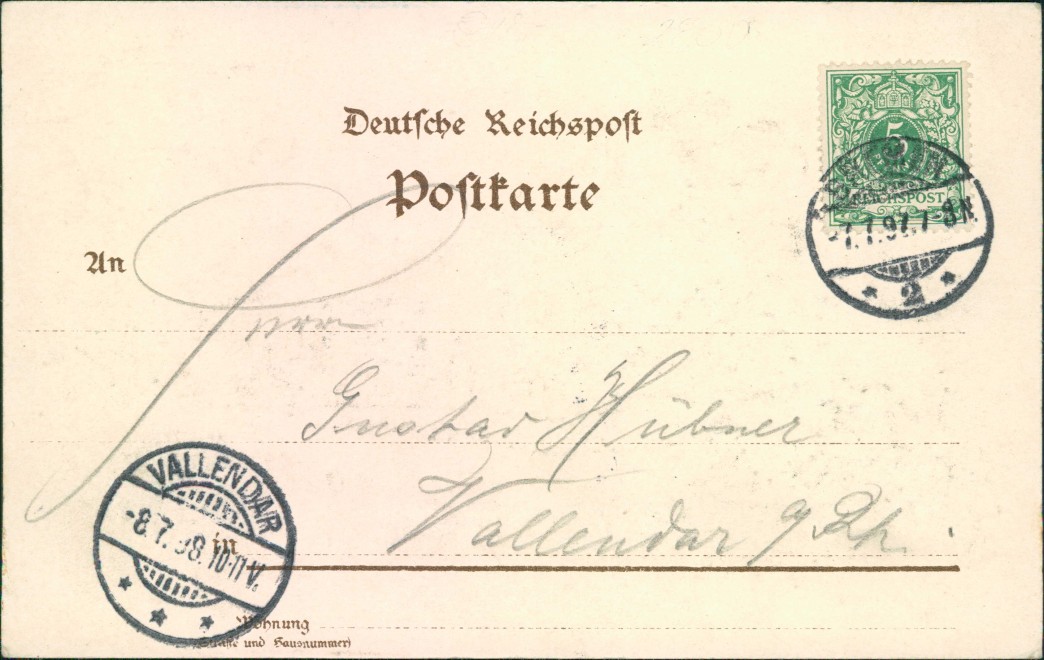 Deutsche Reichspost
Postkarte
5
REICHSPOST
7.7.97.7-8N
2
An
Herrn
Gustav Hübner
Vallendar a/Rh.
VALLENDAR
-8.7.98.10-11V.
in
Wohnung
(Straße und Hausnummer)